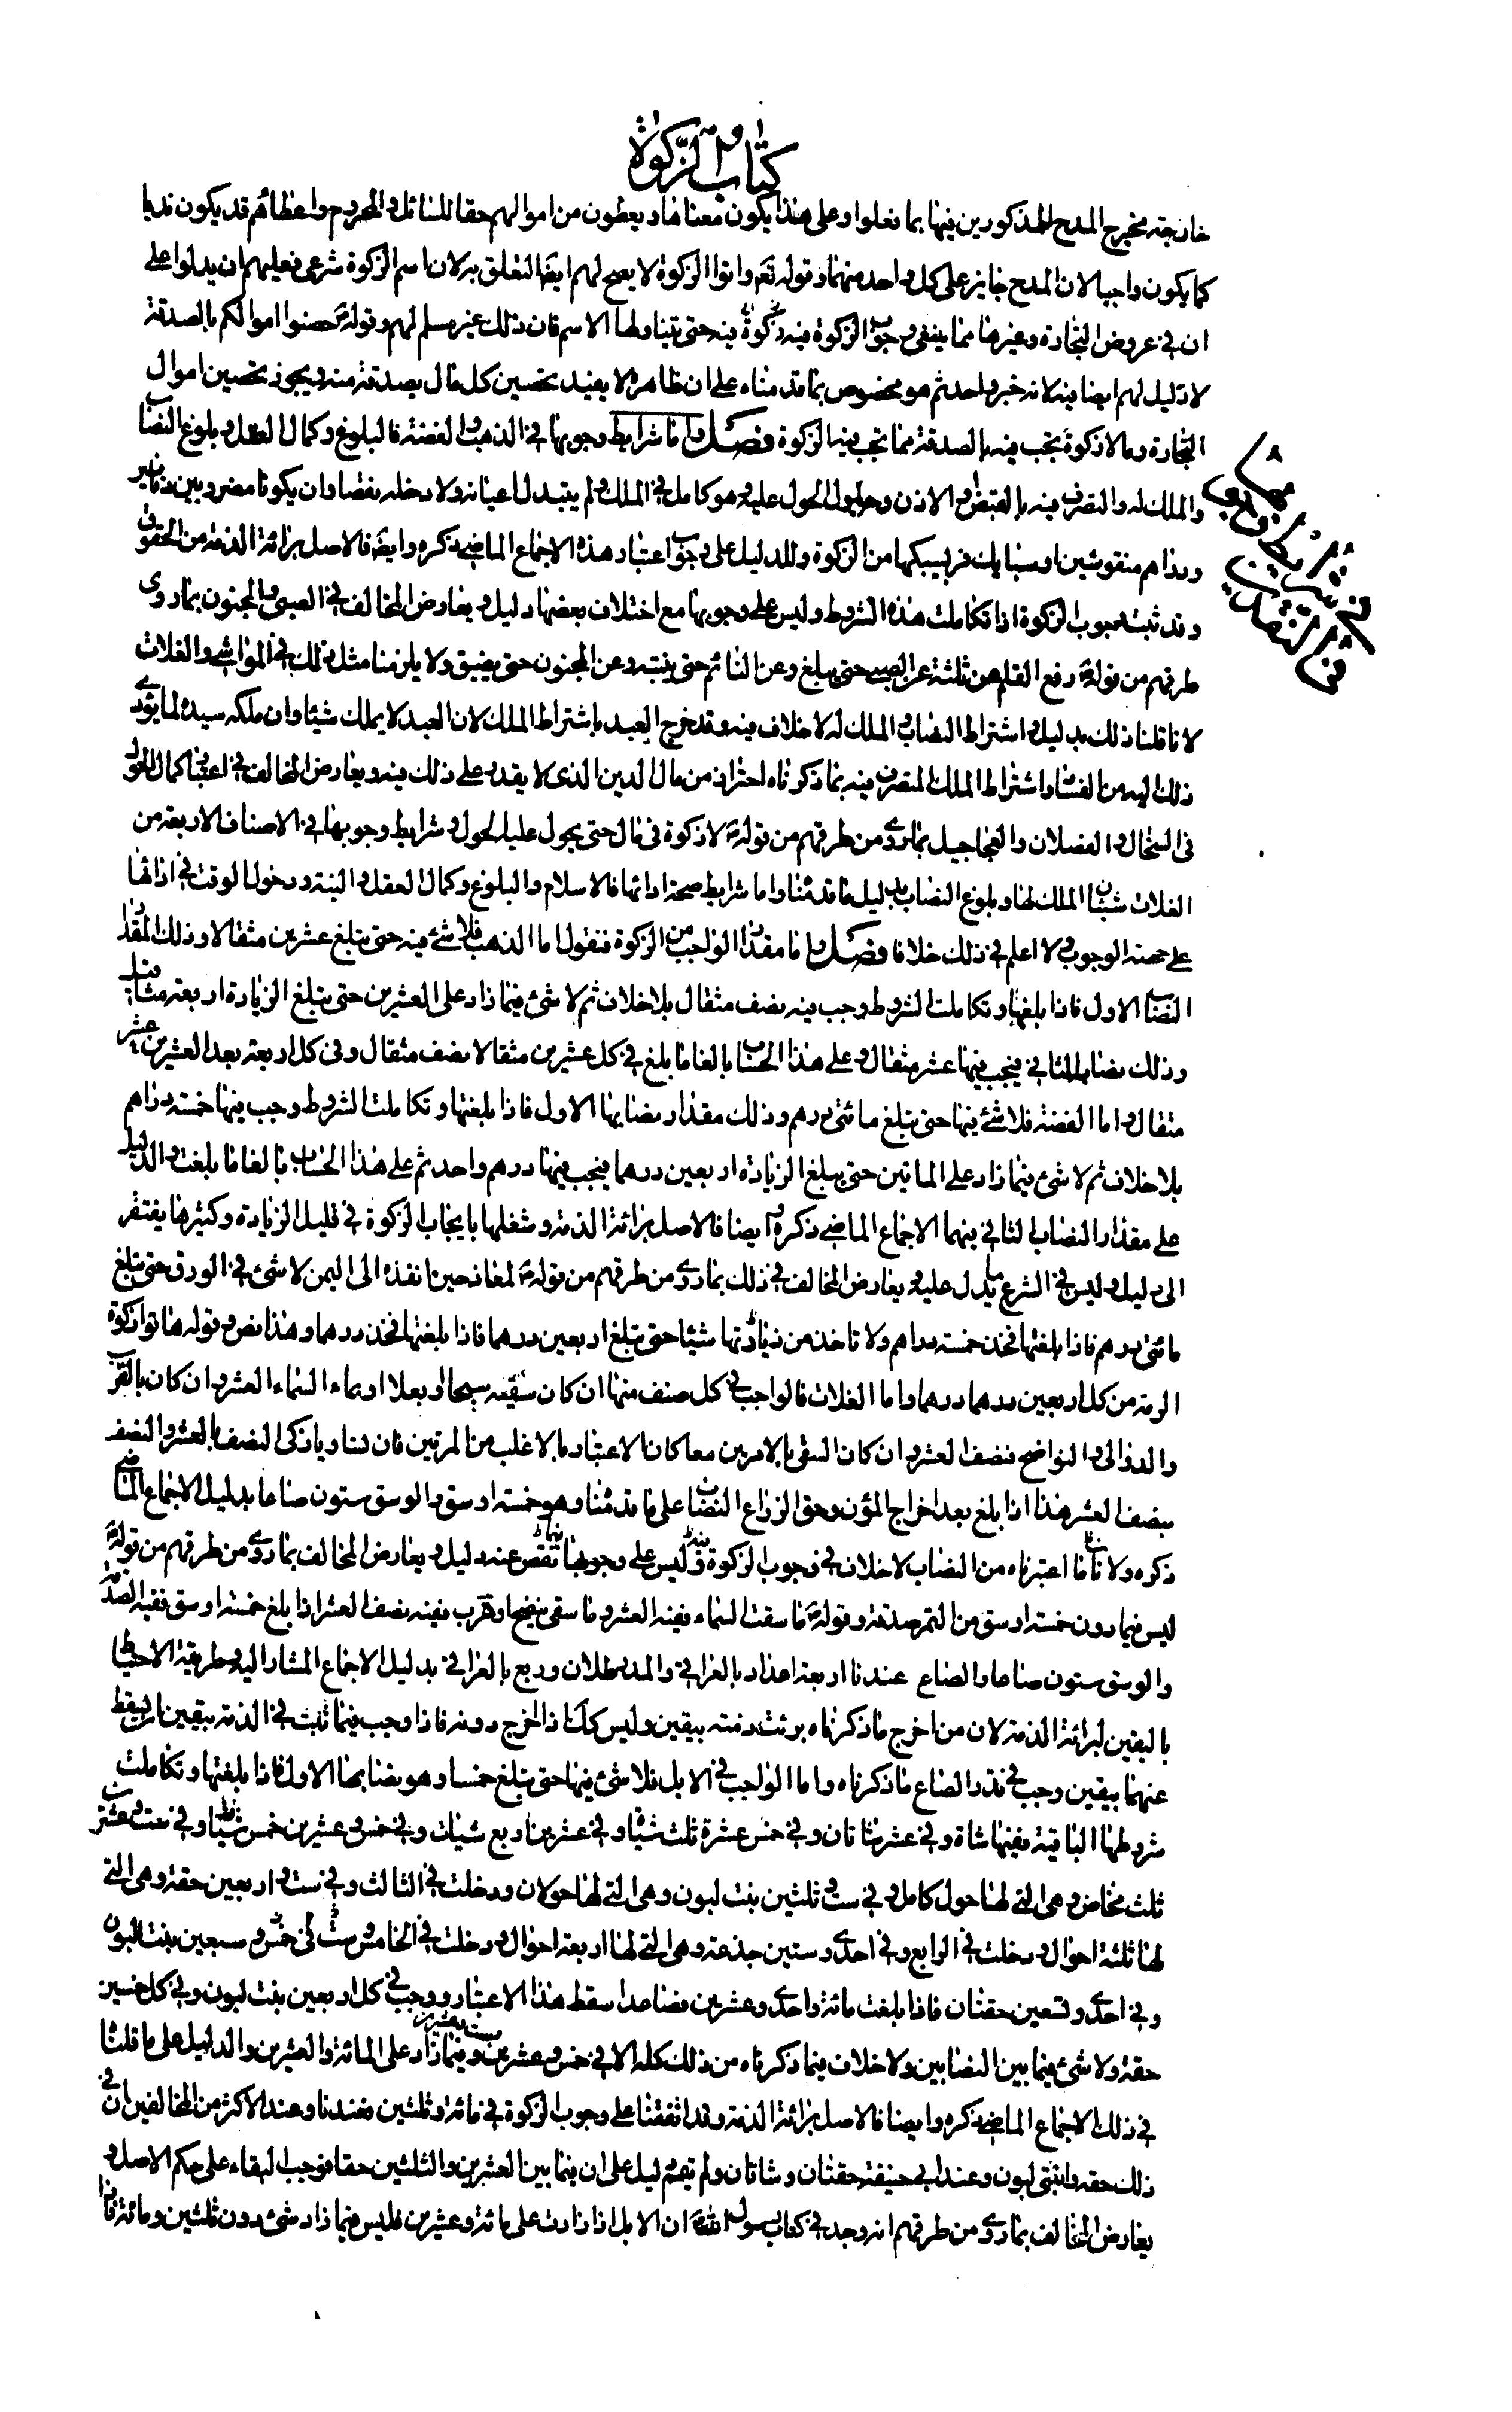 كتاب الزكوة
خارجة مخرج المدح للمذكورين فيها بما فعلوا وعلى هذا يكون معناها ويعطون من اموالهم حقا للسائل والمحروم واعطائهم قد يكون ندبا
كما يكون واجبا لان المدح جايز على كل واحد منهما وقوله تعم واتوا الزكوة لا يصح لهم ايضا التعلق به لان اسم الزكوة شرعى فعليهم ان يدلوا على
ان في عروض التجارة وغيرها مما ينفى وجوب الزكوة فيه زكوة فيه حتى يتناولها الاسم فان ذلك غير مسلم لهم وقوله ع حصنوا اموالكم بالصدقة
لا دليل لهم ايضا فيه لانه خبر واحد ثم هو مخصوص بما قدمناه على ان ظاهره لا يفيد تحصين كل مال بصدقة منه ويجوز تحصين اموال
التجارة وما لا زكوة تجب فيه بالصدقة مما تجب فيه الزكوة فصل واما شرايط وجوبها في الذهب والفضة فالبلوغ وكمال العقل وبلوغ النصاب
والملك له والتصرف فيه بالقبض او الاذن وحلول الحول عليه وهو كامل في الملك ولم يتبدل اعيانه ولا دخله نقصا وان يكونا مضروبين دنانير
ودراهم منقوشين او سبايك فر بسبكها من الزكوة والدليل على وجوب اعتبار هذه الاجماع الماضي ذكره وايضا فالاصل برائة الذمة من الحقوق
وقد ثبت وجوب الزكوة اذا تكاملت هذه الشروط وليس على وجوبها مع اختلاف بعضها دليل ويعارض المخالف في الصبى والمجنون بما روى
طرقهم من قوله ع رفع القلم عن ثلثة عن الصبي حتى يبلغ وعن النائم حتى ينتبه وعن المجنون حتى يفيق ولا يلزمنا مثل ذلك في المواشي والغلات
لانا قلنا ذلك بدليل واشتراط النصاب والملك له لا خلاف فيه وقد خرج العبد باشتراط الملك لان العبد لا يملك شيئا وان ملكه سيده لما يؤدي
ذلك اليه من الفساد واشتراط الملك المتصرف فيه بما ذكرناه احترازا من مال الدين الذى لا يقدر على ذلك فيه ويعارض المخالف في اعتبار كمال الحول
في السخال والفصلان والعجاجيل بما روي من طرقهم من قوله ع لا زكوة في مال حتى يحول عليه الحول وشرايط وجوبها في الاصناف الاربعة من
الغلات شيئان الملك لها وبلوغ النصاب بدليل ما قدمنا واما شرايط صحة ادائها فالاسلام والبلوغ وكمال العقل والنية ودخول الوقت في ادائها
على جهة الوجوب لا اعلم في ذلك خلافا فصل واما مقدار الواجب من الزكوة فنقول اما الذهب فلا شئ فيه حتى يبلغ عشرين مثقالا وذلك المقدار
النصاب الاول فاذا بلغها وتكاملت الشروط وجب فيه نصف مثقال بلا خلاف ثم لا شئ فيما زاد على العشرين حتى يبلغ الزيادة اربعة مثاقيل
وذلك نصابه الثاني فيجب فيها عشر مثقال وعلى هذا الحساب بالغا ما بلغ في كل عشرين مثقالا نصف مثقال وفي كل اربعة بعد العشرين عشر
مثقال واما الفضة فلا شئ فيها حتى تبلغ مائتى درهم وذلك مقدار نصابها الاول فاذا بلغتها وتكاملت الشروط وجب فيها خمسة دراهم
بلا خلاف ثم لا شئ فيما زاد على المائتين حتى يبلغ الزيادة اربعين درهما فيجب فيها درهم واحد ثم على هذا الحساب بالغا ما بلغت والدليل
على مقدار النصاب الثاني فيهما الاجماع الماضي ذكره وايضا فالاصل برائة الذمة وشغلها بايجاب الزكوة في قليل الزيادة وكثيرها يفتقر
الى دليل وليس في الشرع ما يدل عليه ويعارض المخالف في ذلك بما روي من طرقهم من قوله ع لمعاذ حين انفذه الى اليمن لا شئ في الورق حتى يبلغ
مائتى درهم فاذا بلغتها فخذ خمسة دراهم ولا تاخذ من زيادتها شيئا حتى تبلغ اربعين درهما فاذا بلغتها فخذ درهما وهذا نص وقوله هاتوا زكوة
الرقة من كل اربعين درهما درهما واما الغلات فالواجب في كل صنف منها ان كان سقيه سيحا او بعلا او بماء السماء العشر وان كان بالغرب
والدوالى والنواضح فنصف العشر وان كان السقى بالامرين معا كان الاعتبار بالاغلب من المرتين فان تساويا زكى النصف بالعشر والنصف
بنصف العشر هذا اذا بلغ بعد اخراج المؤن وحق الزراع النصاب على ما قدمنا وهو خمسة اوسق والوسق ستون صاعا بدليل الاجماع الماضي
ذكره ولان ما اعتبرناه من النصاب لا خلاف في وجوب الزكوة فيه وليس على وجوبها فيما نقص عنه دليل ويعارض المخالف بما روي من طرقهم من قوله ع
ليس فيما دون خمسة اوسق من التمر صدقة وقوله ع ما سقت السماء ففيه العشر وما سقى بنضح او غرب ففيه نصف العشر اذا بلغ خمسة اوسق ففيه الصدقة
والوسق ستون صاعا والصاع عندنا اربعة امداد بالعراقي والمد رطلان وربع بالعراقي بدليل الاجماع المشار اليه وطريقة الاحتياط
باليقين لبرائة الذمة لان من اخرج ما ذكرناه برئت ذمته بيقين وليس كك اذا اخرج دونه فاذا وجب فيما ثبت في الذمة بيقين ان يسقط
عنها بيقين وجب في قدر الصاع ما ذكرناه واما الواجب في الابل فلا شئ فيها حتى تبلغ خمسا وهو نصابها الاول فاذا بلغتها وتكاملت
شروطها الباقية ففيها شاة وفي عشر شاتان وفي خمس عشرة ثلث شياه وفي عشرين اربع شياه وفي خمس وعشرين خمس شياه وفي ست وعشرين
بنت مخاض وهى التي لها حول كامل وفي ست وثلثين بنت لبون وهى التي لها حولان ودخلت في الثالث وفي ست واربعين حقة وهى التي
لها ثلثة احوال ودخلت في الرابع وفي احدى وستين جذعة وهى التي لها اربعة احوال ودخلت في الخامس وفي ست وسبعين بنتا لبون
وفي احدى وتسعين حقتان فاذا بلغت مائة واحدى وعشرين فصاعدا سقط هذا الاعتبار ووجب في كل اربعين بنت لبون وفي كل خمسين
حقة ولا شئ فيما بين النصابين ولا خلاف فيما ذكرناه من ذلك كله الا في خمس وعشرين وست وعشرين وفيما زاد على المائة والعشرين والدليل على ما قلناه
في ذلك الاجماع الماضي ذكره وايضا فالاصل برائة الذمة وقد اتفقنا على وجوب الزكوة في مائة وثلثين فعندنا وعند الاكثر من المخالفين ان في
ذلك حقة وابنتى لبون وعند ابي حنيفة حقتان وشاتان ولم يقم دليل على ان فيما بين العشرين والثلثين حقا فوجب البقاء على حكم الاصل و
يعارض المخالف بما روي من طرقهم انه وجد في كتاب رسول الله ص ان الابل اذا زادت على مائة وعشرين فليس فيما زاد شئ دون ثلثين ومائة فاذا